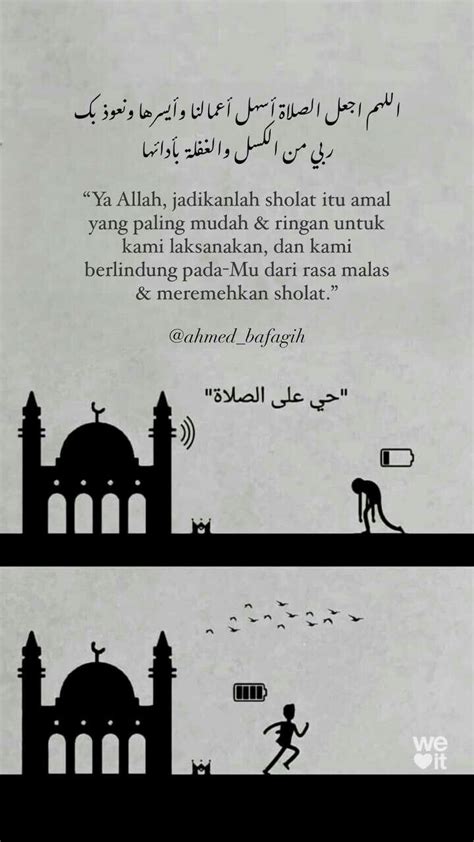 اللهم اجعل الصلاة أسهل أعمالنا وأيسرها ونعوذ بك
ربي من الكسل والغفلة بأدائها
“Ya Allah, jadikanlah sholat itu amal
yang paling mudah & ringan untuk
kami laksanakan, dan kami
berlindung pada-Mu dari rasa malas
& meremehkan sholat.”
@ahmed_bafagih
"حي على الصلاة"
we
it